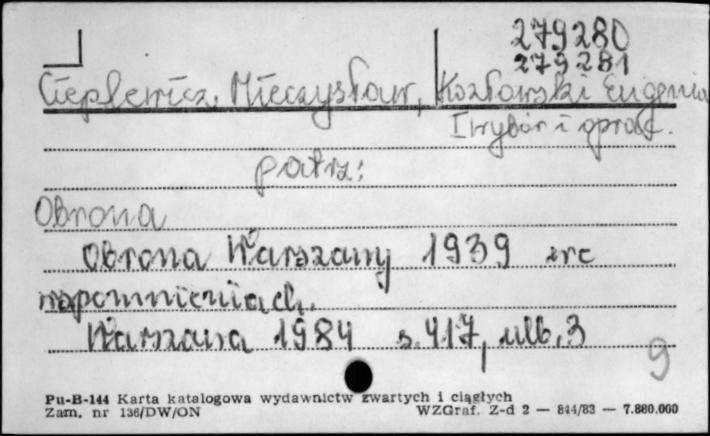 279280
279281
Cieplewicz, Mieczysław, Kozłowski Eugeniu
I wybór i oprac.
patrz:
Obrona
Obrona Warszawy 1939 we
wspomnieniach.
Warszawa 1984 s. 417, nlb. 3
9
Pu-B-144 Karta katalogowa wydawnictw zwartych i ciągłych
Zam. nr 136/DW/ON WZGraf. Z-d 2 — 844/83 — 7.880.000